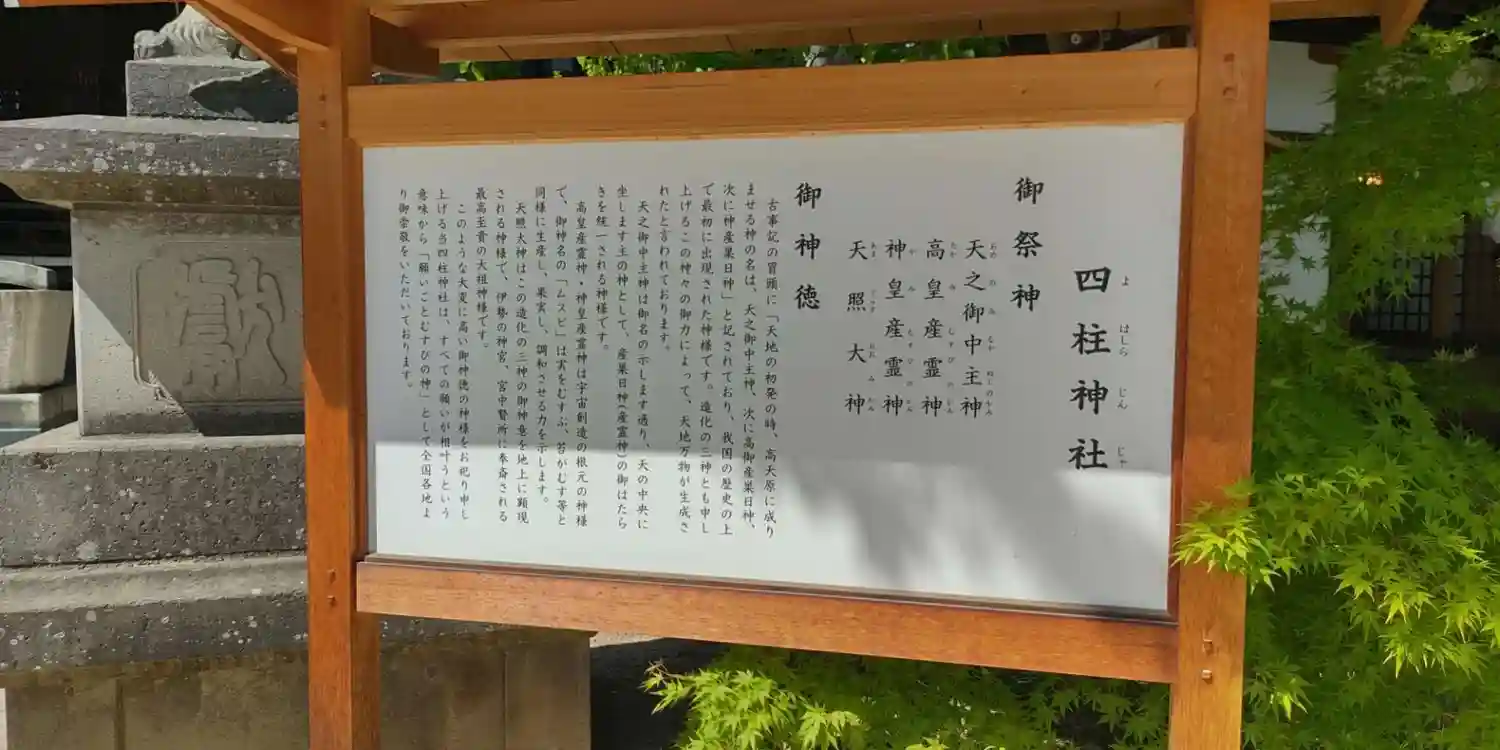 四柱神社
よ はしら じん じゃ
御祭神
天之御中主神
高皇産霊神
神皇産霊神
天照大神
御神徳
古事記の冒頭に「天地の初発の時、高天原に成り
ませる神の名は、天之御中主神、次に高御産巣日神、
次に神産巣日神」と記されており、我国の歴史の上
で最初に出現された神様です。造化の三神とも申し
上げるこの神々の御力によって、天地万物が生成さ
れたと言われております。
天之御中主神は御名の示します通り、天の中央に
坐します主の神として、産巣日神(産霊神)の御はたら
きを統一される神様です。
高皇産霊神・神皇産霊神は宇宙創造の根元の神様
で、御神名の「ムスビ」は実をむすぶ、苔がむす等と
同様に生産し、果実し、調和させる力を示します。
天照大神はこの造化の三神の御神意を地上に顕現
される神様で、伊勢の神宮、宮中賢所に奉斎される
最高至貴の大祖神様です。
このような大変に高い御神徳の神様をお祀り申し
上げる当四柱神社は、すべての願いが相叶うという
意味から「願いごとむすびの神」として全国各地よ
り御崇敬をいただいております。
献